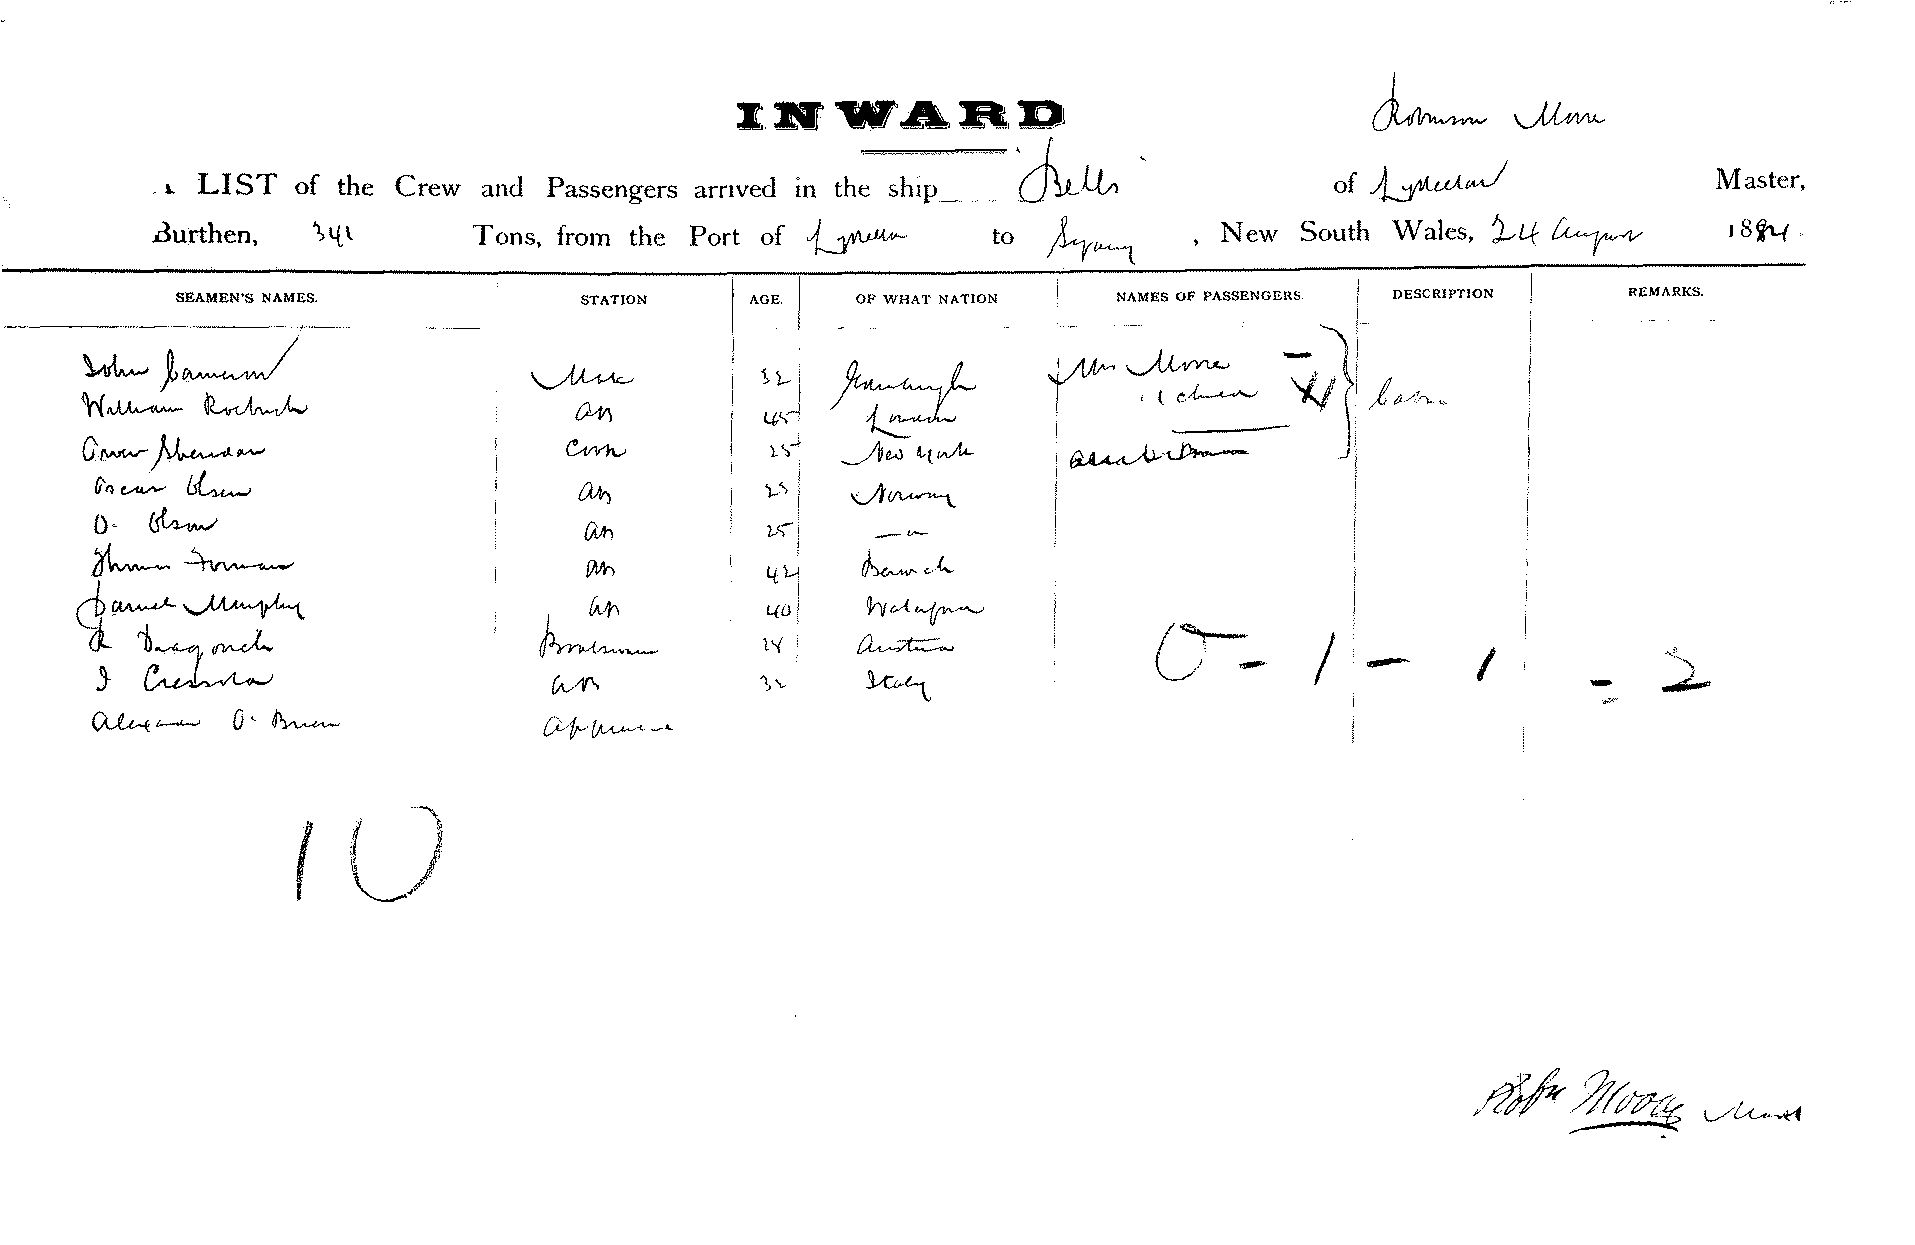 INWARD
Robinson Moore
LIST of the Crew and Passengers arrived in the ship "Bells" of Lyttelton Master,
Burthen, 341 Tons, from the Port of to Sydney, New South Wales, 24 August 1884.
SEAMEN'S NAMES. STATION AGE. OF WHAT NATION NAMES OF PASSENGERS. DESCRIPTION REMARKS.
John Cameron Mate 32 Mrs Moore
William Roebuck AB 45 London
Owen Sheridan Cook 25 New York
Oscar Olsen AB 23 Norway
O. Olson AB 25 — " —
Thomas AB 42 Berwick
Daniel Murphy AB 40
R Dragovich Boatswain 24 Austria
AB 32 Italy
Alexander O'Brien
O - 1 - 1 = 2
10
Robn Moore Mast